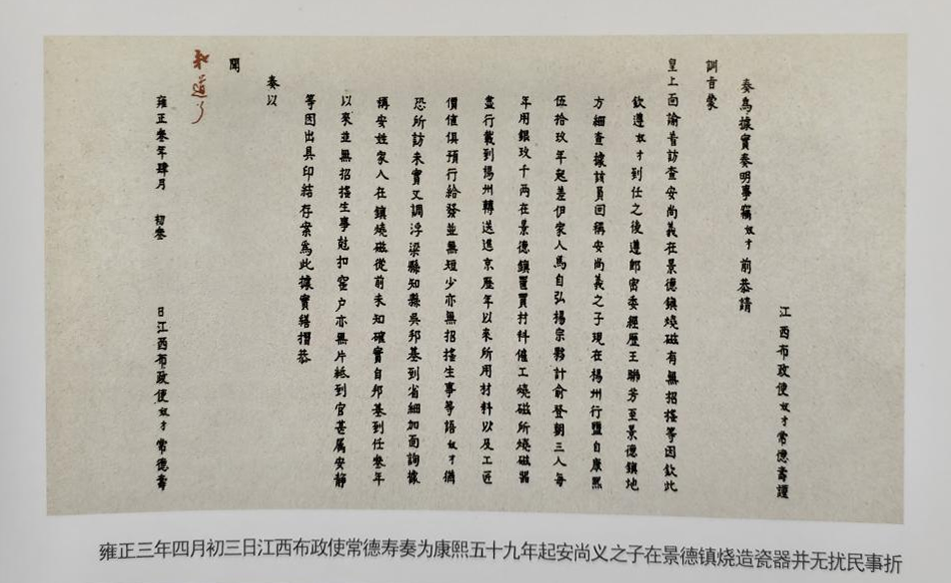 江西布政使奴才常德壽謹
奏為據實奏明事竊奴才前恭請
訓旨蒙
皇上面諭着訪查安尚義在景德鎮燒磁有無招搖等因欽此
欽遵奴才到任之後遵即密委經歷王聯芳至景德鎮地
方細查據該員回稱安尚義之子現在楊州行鹽自康熙
伍拾玖年起差伊家人馬自弘楊宗夥計俞登朝三人每
年用銀玖千兩在景德鎮置買材料催工燒磁所燒磁器
盡行載到楊州轉送進京歷年以來所用材料以及工匠
價值俱預行給發並無短少亦無招搖生事等語奴才猶
恐所訪未實又調浮梁縣知縣吳邦基到省細加面詢據
稱安姓家人在鎮燒磁從前未知確實自邦基到任叁年
以來並無招搖生事尅扣窰户亦無片紙到官甚属安靜
等因出具印結存案為此據實繕摺恭
奏以
聞
知道了
雍正叁年肆月 初叁 日江西布政使奴才常德壽
雍正三年四月初三日江西布政使常德寿奏为康熙五十九年起安尚义之子在景德镇烧造瓷器并无扰民事折